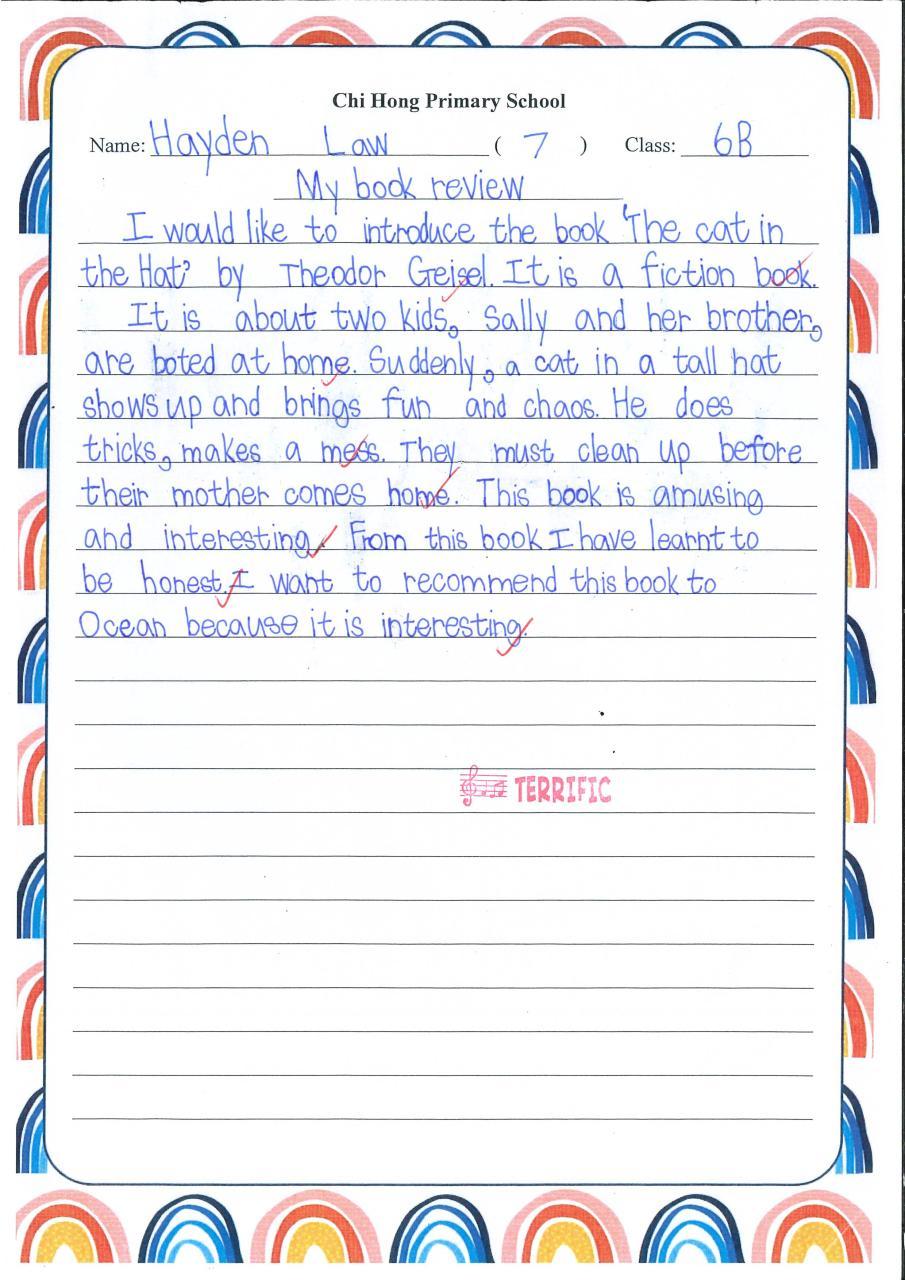 Chi Hong Primary School
Name: Hayden Law ( 7 ) Class: 6B
My book review
I would like to introduce the book 'The cat in
the Hat' by Theodor Geisel. It is a fiction book.
It is about two kids, Sally and her brother,
are boted at home. Suddenly, a cat in a tall hat
shows up and brings fun and chaos. He does
tricks, makes a mess. They must clean up before
their mother comes home. This book is amusing
and interesting. From this book I have learnt to
be honest. I want to recommend this book to
Ocean because it is interesting.
TERRIFIC